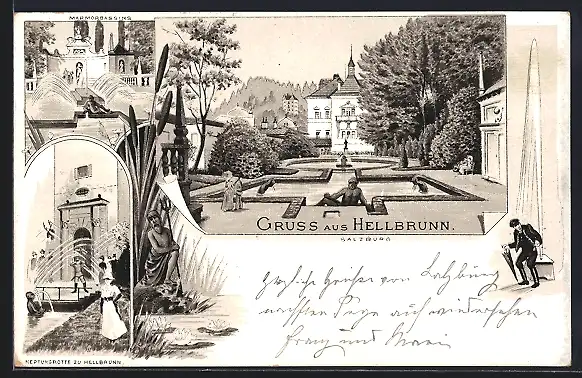 MARMORBASSINS
GRUSS AUS HELLBRUNN.
SALZBURG
Herzliche Grüße von Salzburg
nächsten Tage auf wiedersehen
Franz und Marie
NEPTUNGROTTE ZU HELLBRUNN.